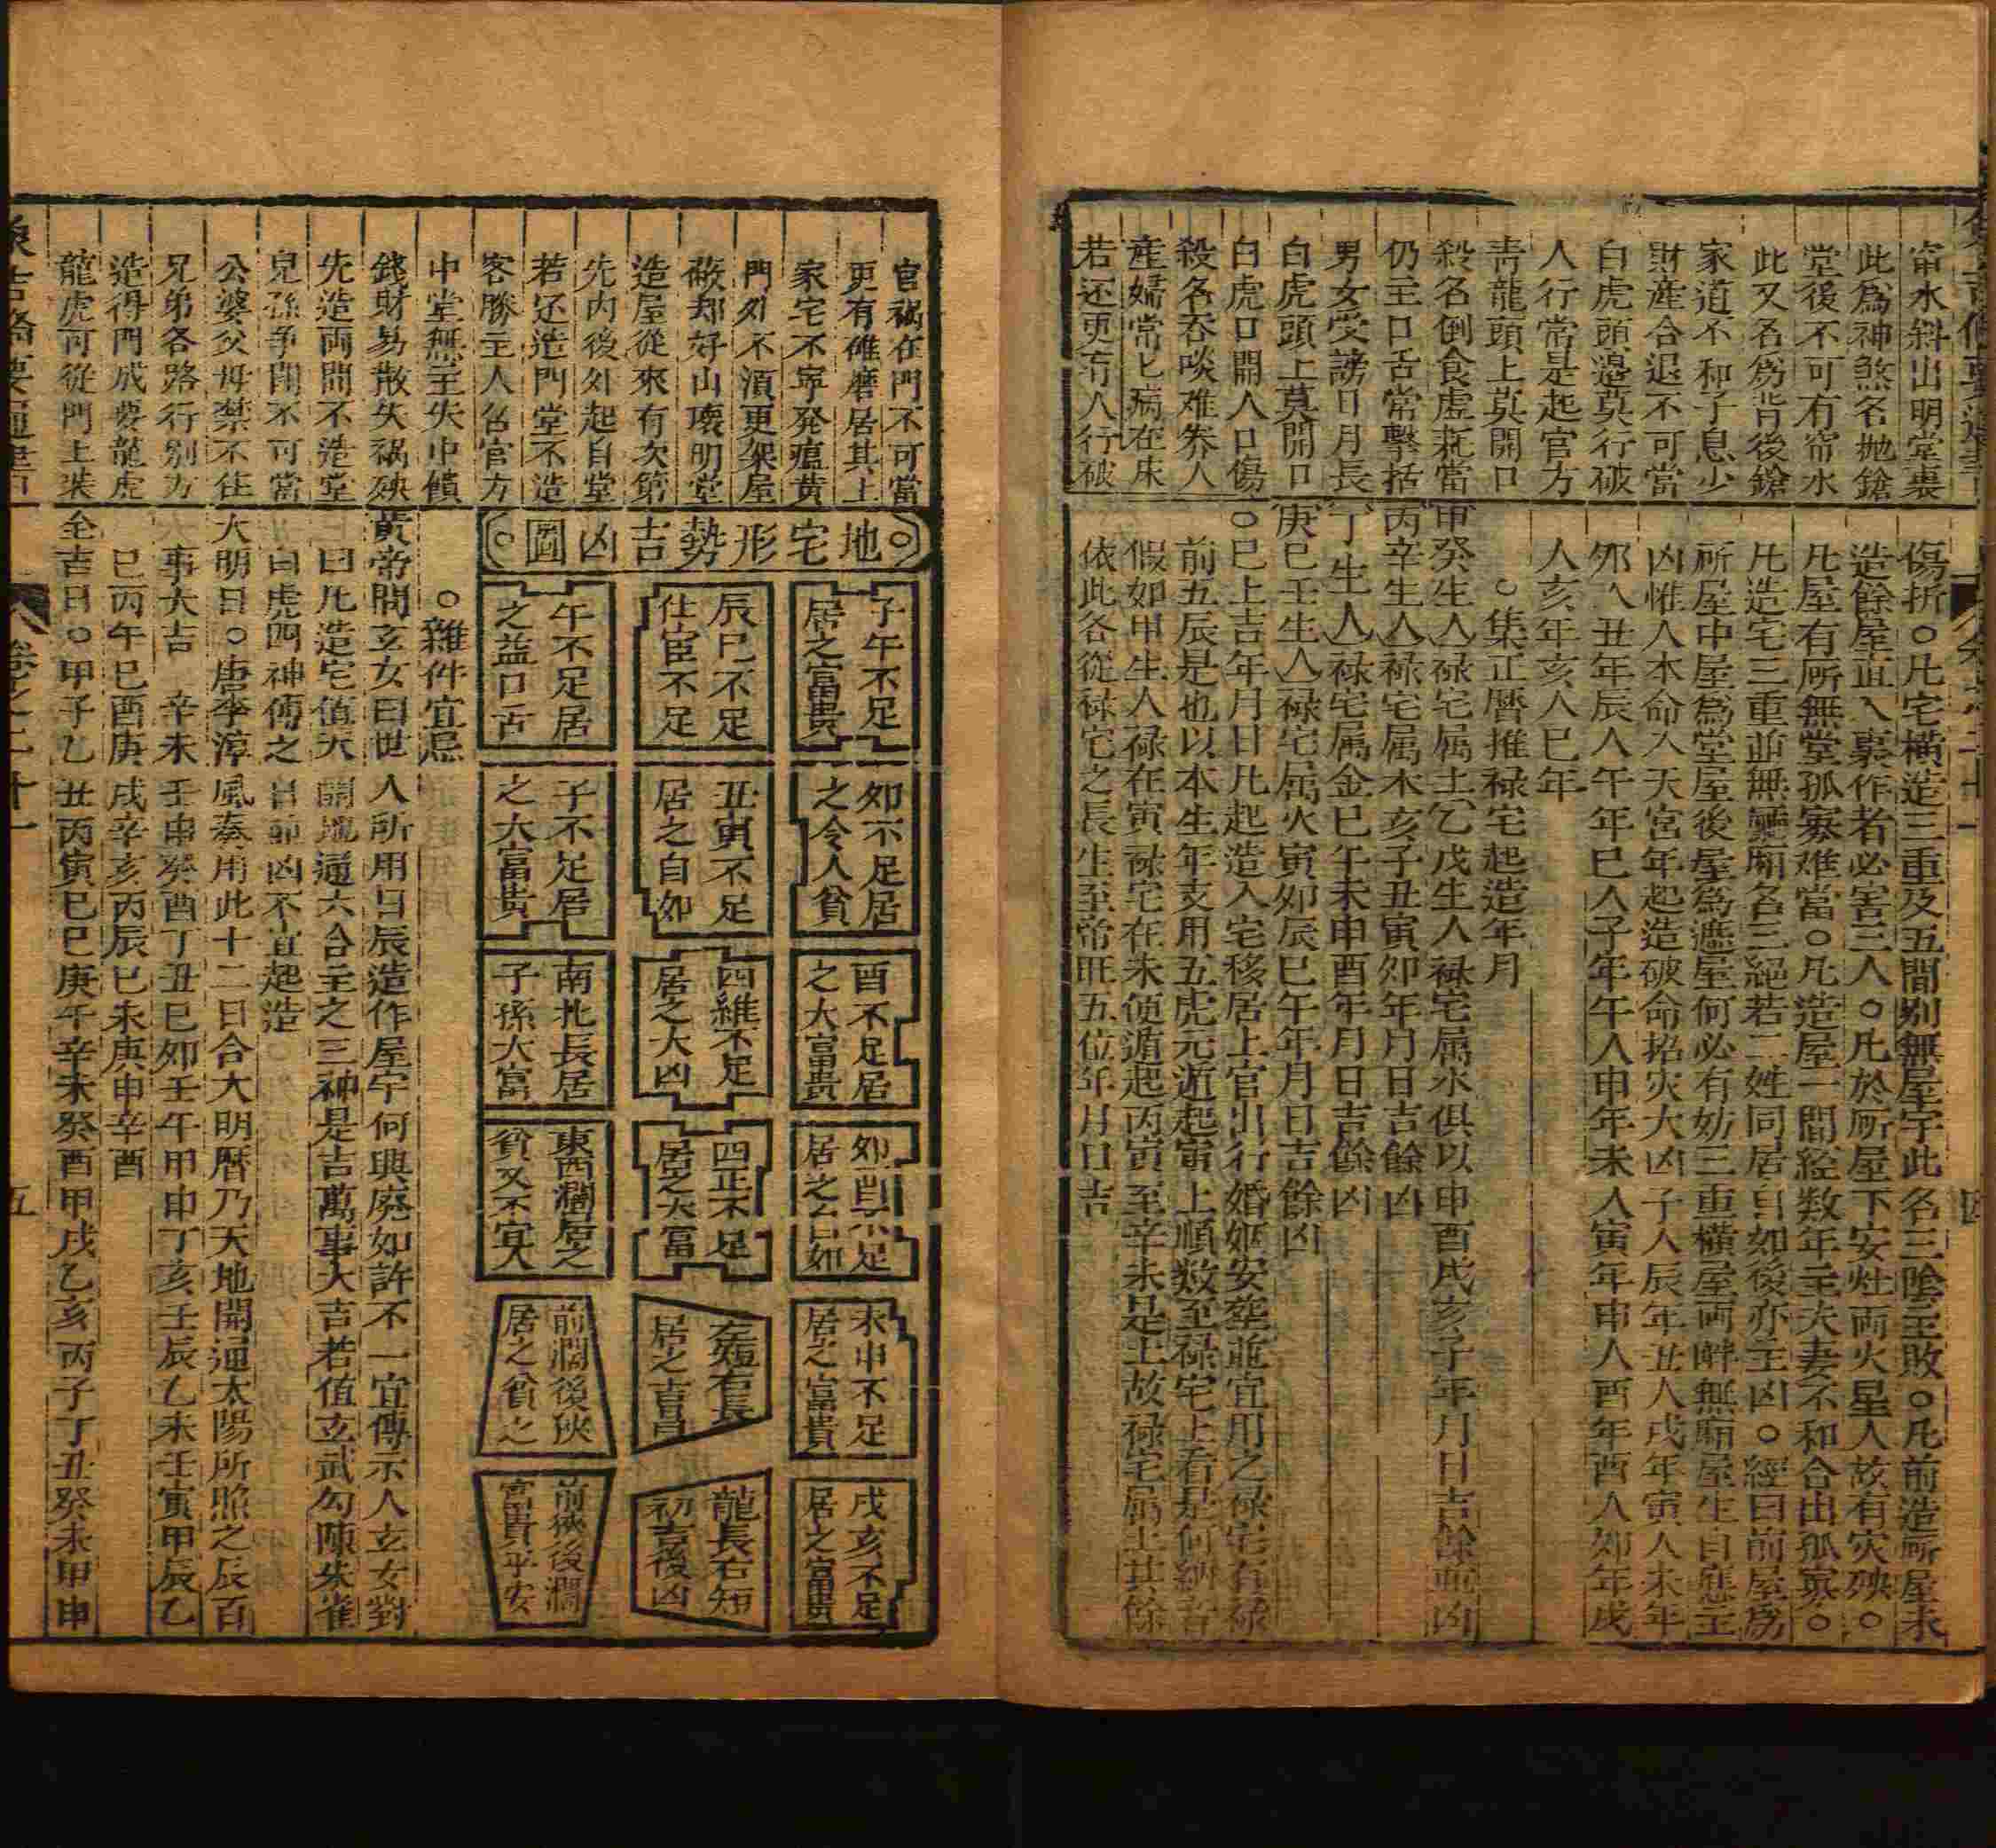 帘水斜出明堂裏
此為神煞名抛鎗
堂後不可有帘水
此又名為背後鎗
家道不和子息少
財産合退不可當
白虎頭邊莫行破
人行常是起官方
青龍頭上莫開口
殺名倒食虚耗當
仍主口舌常擊括
男女受謗日月長
白虎頭上莫開口
白虎口開人口傷
殺名吞啖难养人
産婦常匕病在床
若还更有人行破
傷折○凡宅横造三重及五間别無屋宇此名三陰主敗○凡前造𠩄屋未
造餘屋直入裏作者必害三人○凡於𠩄屋下安灶両火星人故有灾殃○
凡屋有𠩄無堂孤寡难當○凡造屋一間経数年主夫妻不和合出孤寡○
凡造宅三重並無廳廟各三絕若二姓同居自如後亦主凶○經曰前屋為
𠩄屋中屋為堂屋後屋為遮屋何必有妨三重横屋両畔無廟屋生自惡主
凶惟人本命入天宮年起造破命招灾大凶子人辰年丑人戌年寅人未年
夘人丑年辰人午年巳人子年午人申年未人寅年申人酉年酉人夘年戌
人亥年亥人巳年
○集正曆推禄宅起造年月
甲癸生人禄宅属土乙戊生人禄宅属水俱以申酉戌亥子年月日吉餘並凶
丙辛生人禄宅属木亥子丑寅夘年月日吉餘凶
丁生人禄宅属金巳午未申酉年月日吉餘凶
庚巳壬生人禄宅属火寅夘辰巳午年月日吉餘凶
○巳上吉年月日凡起造入宅移居上官出行婚姻安塟並宜用之禄宅有禄
前五辰是也以本生年支用五虎元遁起寅上順数至禄宅上看是何納音
假如甲生人禄在寅禄宅在未便遁起丙寅至辛未是土故禄宅属土其餘
依此各從禄宅之長生至帝旺五位年月日吉
官禍在門不可當
更有碓磨居其上
家宅不寕発瘟黄
門外不湏更架屋
蔽却好山壞明堂
造屋從來有次第
先内後外起自堂
若还造門堂不造
客勝主人召官方
中堂無主失中饋
錢財易散失禍殃
先造両間不造堂
兒孫争閙不可當
公婆父母禁不住
兄弟各路行别方
造得門成要龍虎
龍虎可從門上装
地宅形勢吉凶圖
子午不足
居之富貴
辰巳不足
仕宦不足
午不足居
之益口舌
夘不足居
之令人貧
丑寅不足
居之自如
子不足居
之大富貴
酉不足居
之大富貴
四維不足
居之大凶
南北長居
子孫大富
夘酉不足
居之自如
四正不足
居之大富
東西濶居之
貧又不宜人
未申不足
居之富貴
左短右長
居之吉昌
前濶後狹
居之貧乏
戌亥不足
居之富貴
龍長右短
初吉後凶
前狹後濶
富貴平安
○雜件宜忌
黄帝問玄女曰世人所用日辰造作屋宇何興廃如許不一宜傳示人玄女對
曰凡造宅值天開地通六合主之三神是吉萬事大吉若值玄武勾陳朱雀
白虎四神傳之皆卽凶不宜起造
大明日○唐李淳風奏用此十二日合大明曆乃天地開通太陽所照之辰百
事大吉 辛未壬申癸酉丁丑巳夘壬午甲申丁亥壬辰乙未壬寅甲辰乙
巳丙午巳酉庚戌辛亥丙辰巳未庚申辛酉
全吉日○甲子乙丑丙寅巳巳庚午辛未癸酉甲戌乙亥丙子丁丑癸未甲申
卷之二十一
五